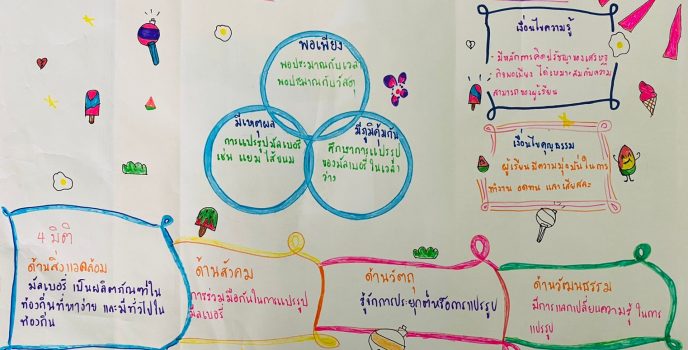 พอเพียง
พอประมาณกับเวลา
พอประมาณกับวัสดุ
มีเหตุผล
การแปรรูปมัลเบอรี่
เช่น แยม ไส้ขนม
มีภูมิคุ้มกัน
ศึกษาการแปรรูป
ของมัลเบอรี่ ในเวลา
ว่าง
เงื่อนไขความรู้
- มีหลักการคิดปรัชญาของเศรษฐ
กิจพอเพียง ได้เหมาะสมกับความ
สามารถของผู้เรียน
เงื่อนไขคุณธรรม
ผู้เรียนมีความมุ่งมั่นในการ
ทำงาน อดทน และเสียสละ
4 มิติ
ด้านสิ่งแวดล้อม
มัลเบอรี่ เป็นผลิตภัณฑ์ใน
ท้องถิ่นที่หาง่าย และมีทั่วไปใน
ท้องถิ่น
ด้านสังคม
การร่วมมือกันในการแปรรูป
มัลเบอรี่
ด้านวัตถุ
รู้จักการประยุกต์หรือการแปรรูป
ด้านวัฒนธรรม
มีการแลกเปลี่ยนความรู้ ในการ
แปรรูป